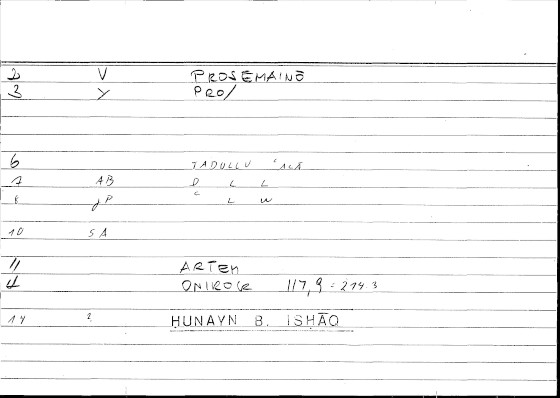 2 V PROSEMAINŌ
3 y PRO/
6 TADULLU ʿALĀ
7 AB D L L
8 JP ʿ L W
10 SA
11 ARTEM
4 ONIROCR 117,9 = 214.3
14 ? HUNAYN B. ISHĀQ